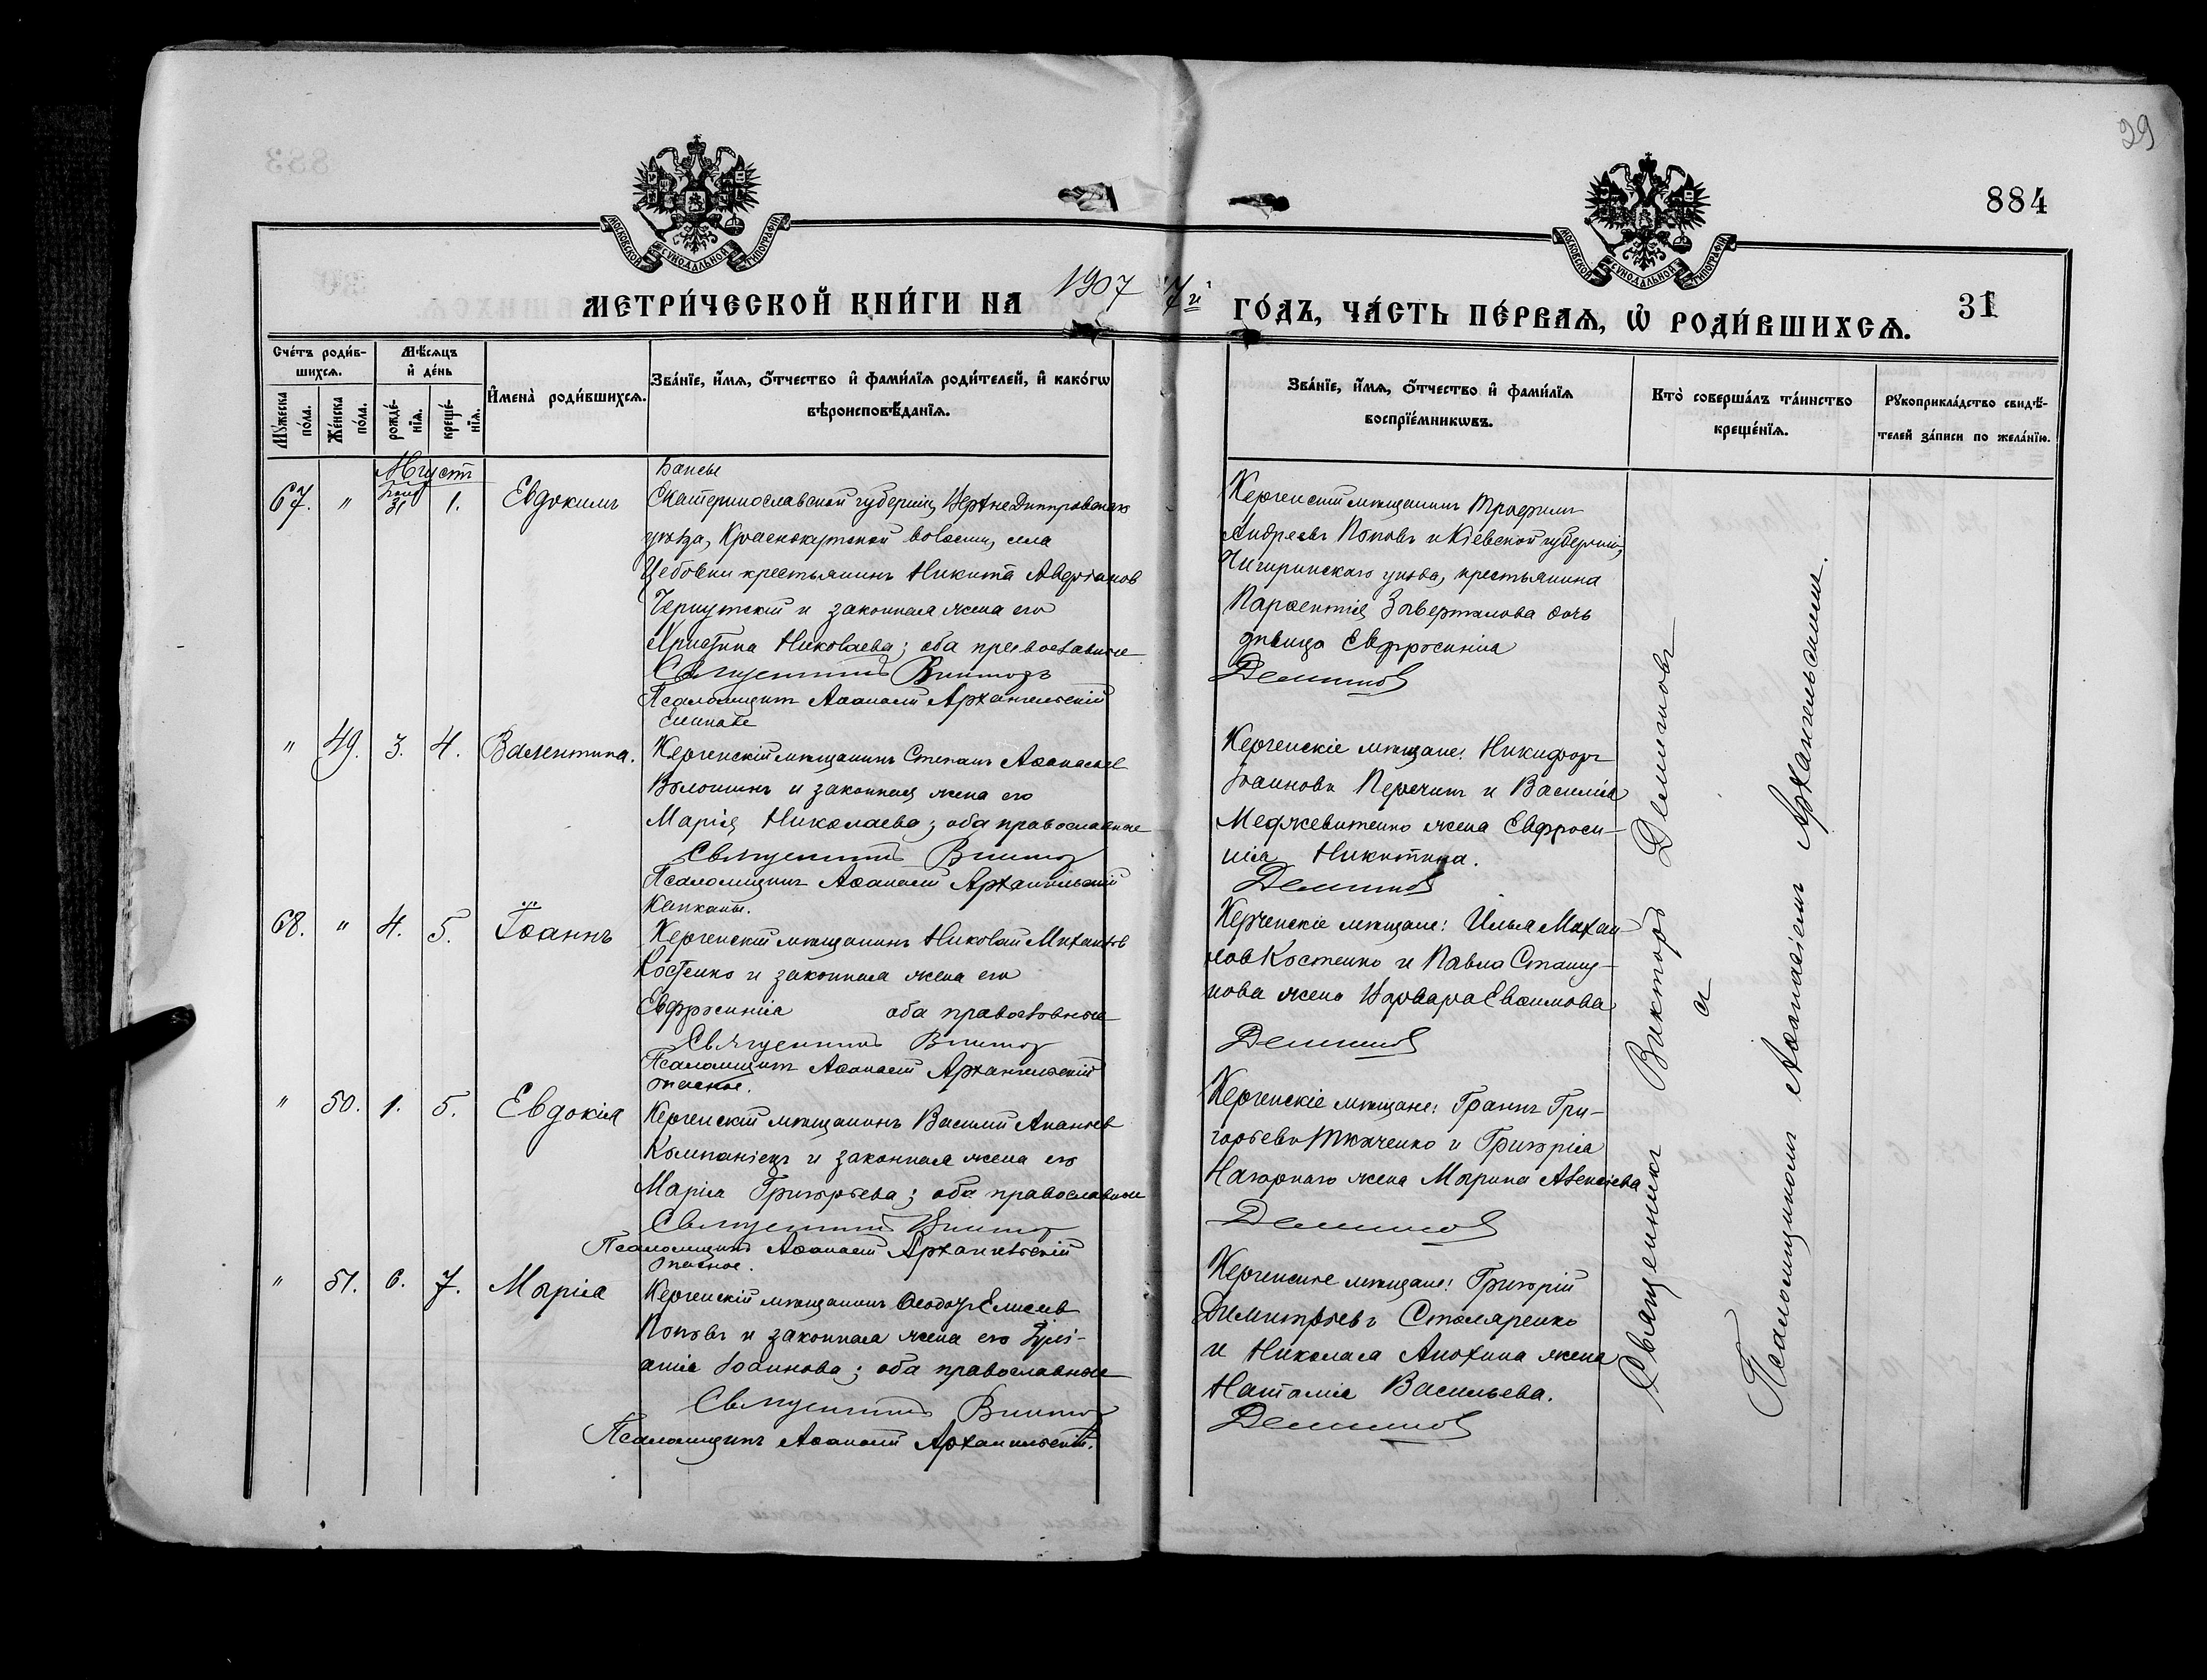 29
884
31
МОСКОВСКОЙ СѴНОДАЛЬНОЙ ТИПОГРАФІИ
МОСКОВСКОЙ СѴНОДАЛЬНОЙ ТИПОГРАФІИ
МЕТРИ́ЧЕСКОЙ КНИ́ГИ НА 1907 7й ГО́ДЪ, ЧА́СТЬ ПЕ́РВАѦ, Ѡ҆ РОДИ́ВШИХСѦ.
Сче́тъ роди́в-
шихсѧ.
Мꙋ́жеска по́ла.
Же́нска по́ла.
Мѣ́сѧцъ и҆ де́нь
рожде́-нїѧ.
креще́-нїѧ.
И҆мена̀ роди́вшихсѧ.
Зва́нїе, и҆́мѧ, ѻ҆́тчество и҆ фами́лїѧ роди́телей, и҆ како́гѡ
вѣроисповѣ́данїѧ.
Зва́нїе, и҆́мѧ, ѻ҆́тчество и҆ фами́лїѧ
воспрїе́мникѡвъ.
Кто̀ соверша́лъ та́инство
креще́нїѧ.
Рꙋкоприкла́дство свидѣ́-
телей за́писи по жела́нїю.
Августъ
67. " 31 1. Евдокимъ
Екатеринославской губерніи, Верхнеднѣпровскаго
уѣзда, Краснокутской волости, села
крестьянинъ Никита
и законная жена его
Христина Николаева; оба православные
Священникъ Викторъ
Псаломщикъ Аѳанасій Архангельскій
Керченскій мѣщанинъ Трофимъ
Андреевъ Поповъ и Кіевской губерніи,
Чигиринскаго уѣзда, крестьянина
дочь
дѣвица Евфросинія
Деминовъ
" 49. 3. 4. Валентина.
Керченскій мѣщанинъ Стефанъ Аѳанасьев
Волошинъ и законная жена его
Марія Николаева; оба православные
Священникъ Викторъ
Псаломщикъ Аѳанасій Архангельскій
Керченскіе мѣщане: Никифоръ
Іоанновъ и Василія
жена Евфроси-
нія Никитина.
Деминовъ
Капканы.
68. " 4. 5. Іоаннъ
Керченскій мѣщанинъ Николай Михаилов
Костенко и законная жена его
Евфросинія оба православные
Священникъ Викторъ
Псаломщикъ Аѳанасій Архангельскій
Керченскіе мѣщане: Илья Михаи-
лов Костенко и Павла
жена Варвара Евѳимова
Деминовъ
Опасное.
" 50. 1. 5. Евдокія
Керченскій мѣщанинъ Василий Ананьев
Компаніецъ и законная жена его
Марія Григорьева; оба православные
Священникъ Викторъ
Псаломщикъ Аѳанасій Архангельскій
Керченскіе мѣщане: Іоаннъ Гри-
горьевъ Ткаченко и Григорія
Нагорнаго жена Марина Алексіева
Деминовъ
Опасное.
" 51. 6. 7. Марія
Керченскій мѣщанинъ Ѳеодоръ Елисеев
Поповъ и законная жена его Іулі-
анія Іоаннова; оба православные
Священникъ Викторъ
Псаломщикъ Аѳанасій Архангельскій.
Керченскіе мѣщане: Григорій
Димитріевъ Столяренко
и Николая Анохина жена
Наталія Васильева.
Деминовъ
Священникъ Викторъ Деминовъ
и
Псаломщикомъ Аѳанасіемъ Архангельскимъ.